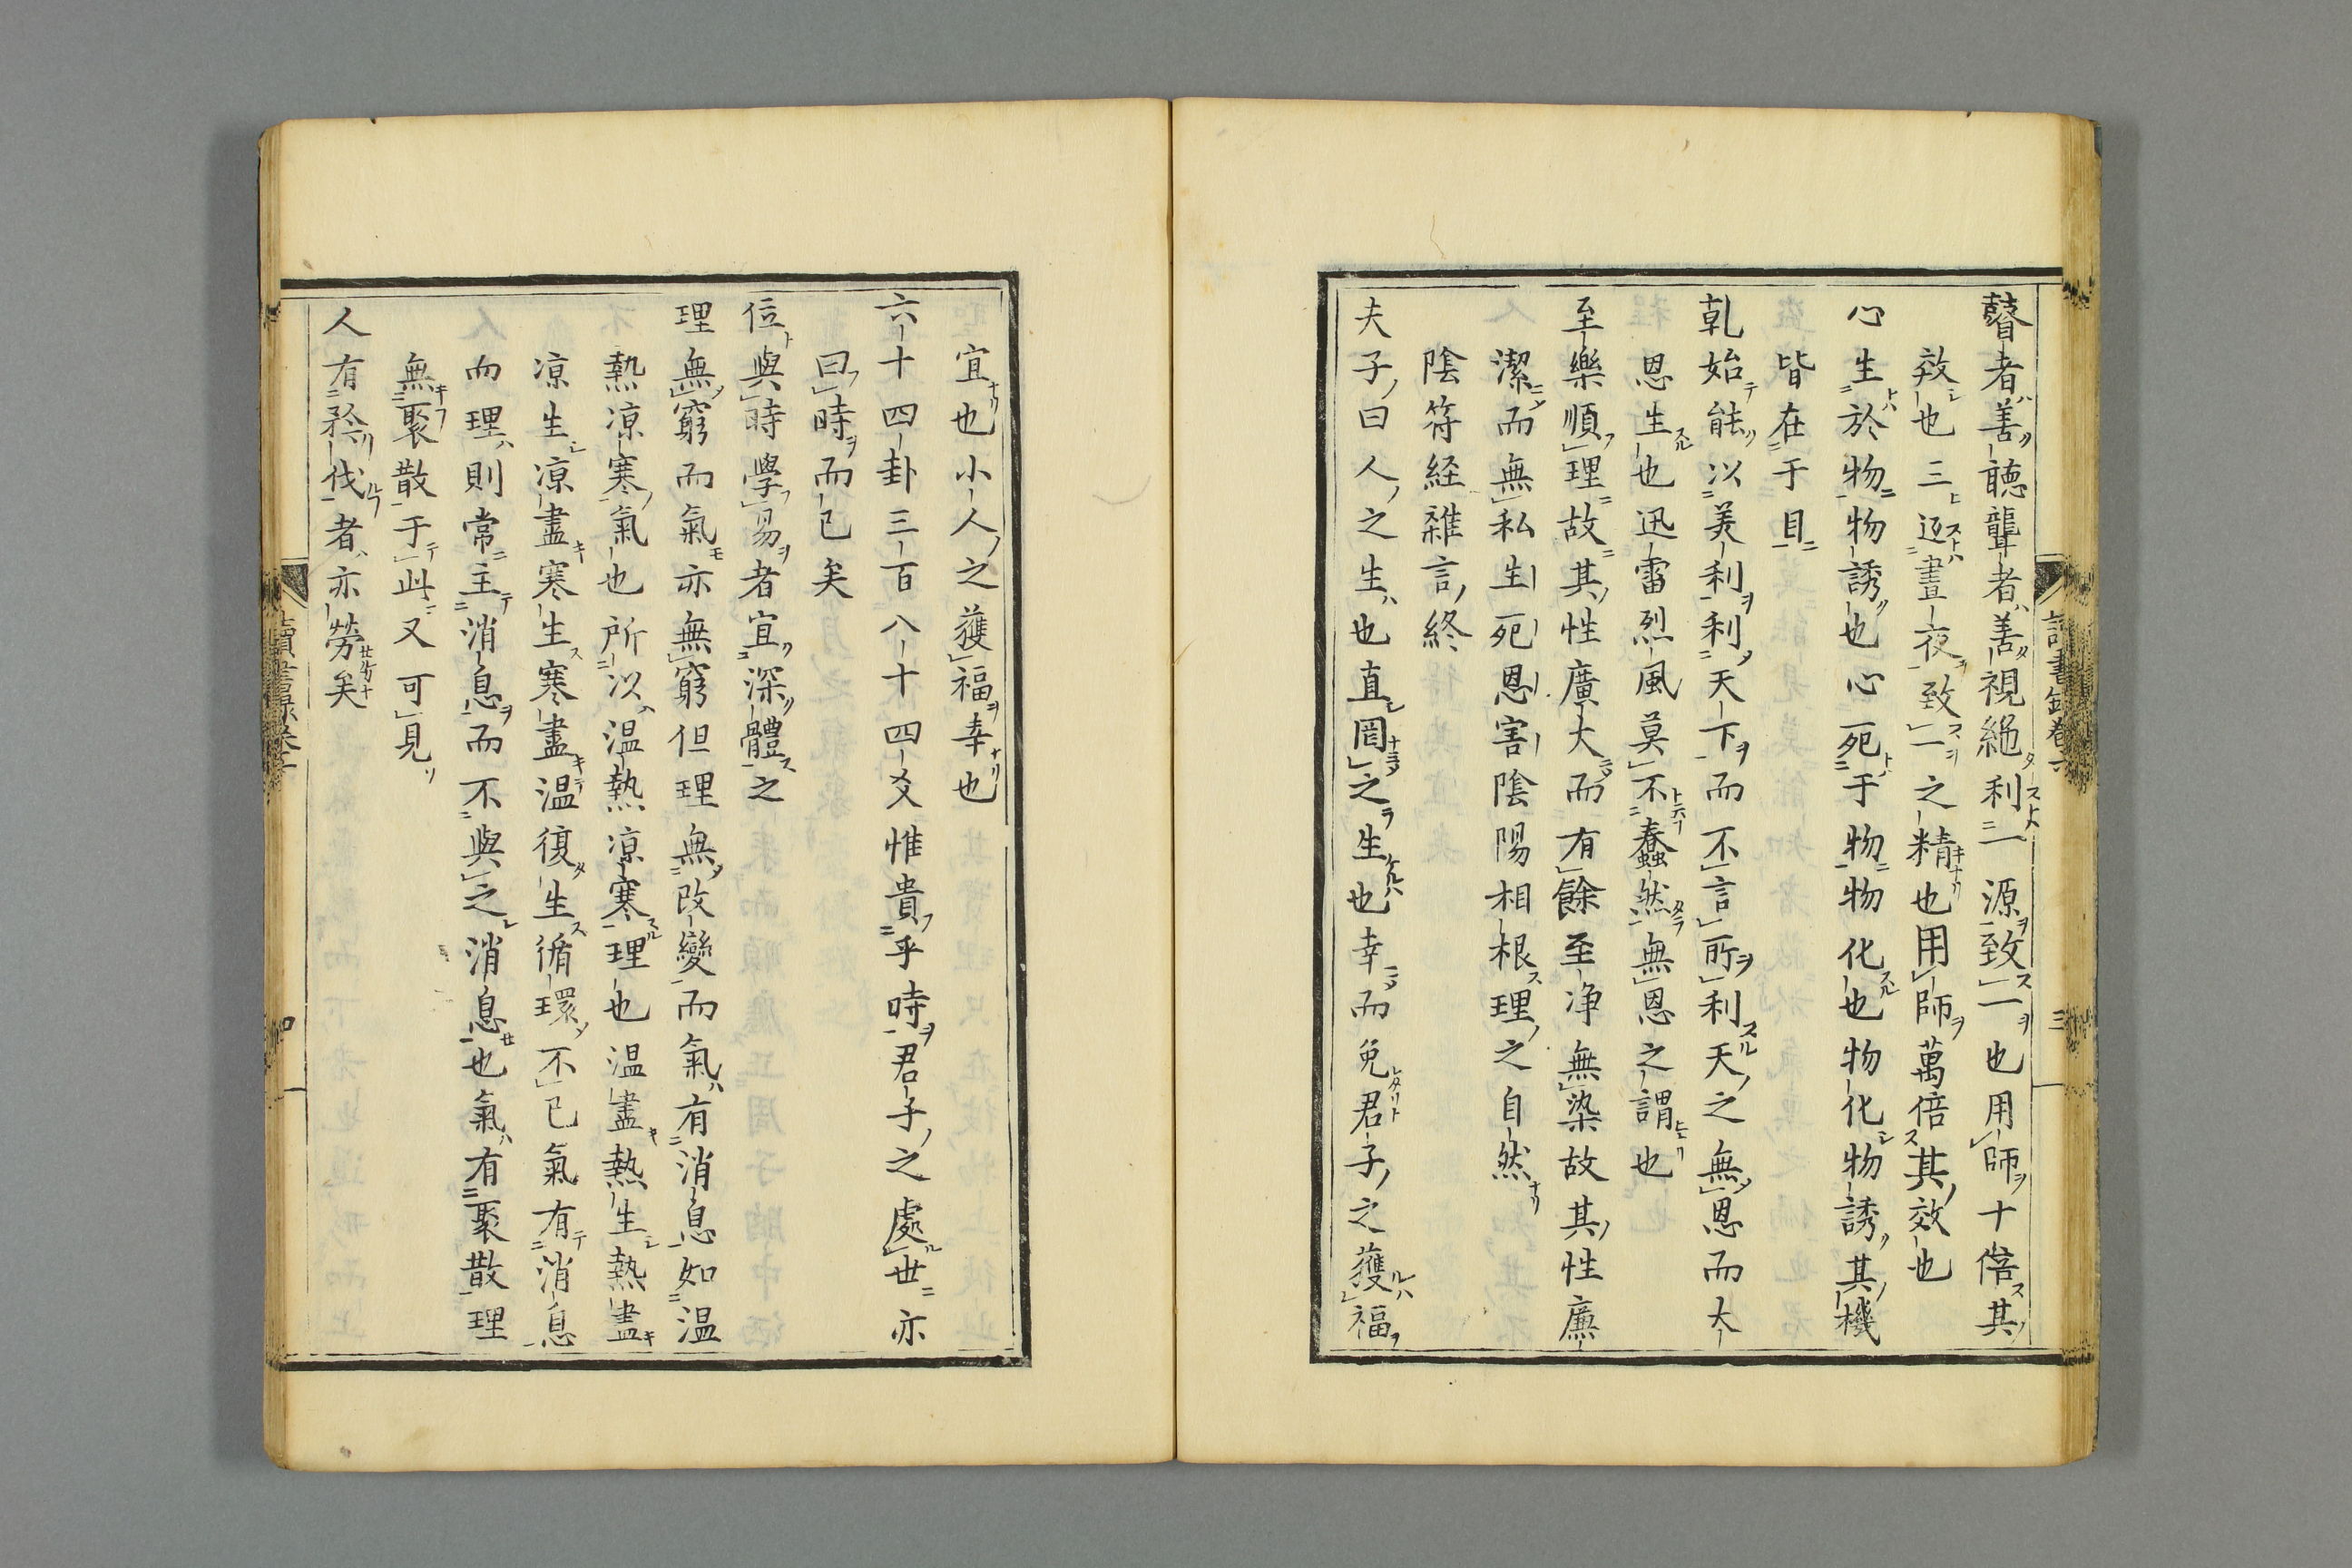 瞽者善聽聾者善視絶利一源致一也用師十倍其
效也三返晝夜致一之精也用師萬倍其效也
心生於物物誘也心死于物物化也物化物誘其機
皆在于目
乹始能以美利利天下而不言所利天之無恩而大
恩生也迅雷烈風莫不蠢然無恩之謂也
至樂順理故其性廣大而有餘至净無染故其性廉
潔而無私生死恩害陰陽相根理之自然
陰符経雜言終
夫子曰人之生也直罔之生也幸而免君子之獲福
宜也小人之獲福幸也
六十四卦三百八十四爻惟貴乎時君子之處世亦
曰時而已矣
位與時學易者宜深體之
理無窮而氣亦無窮但理無改變而氣有消息如温
熱凉寒氣也所以温熱凉寒理也温盡熱生熱盡
凉生凉盡寒生寒盡温復生循環不已氣有消息
而理則常主消息而不與之消息也氣有聚散理
無聚散于此又可見
人有矜伐者亦勞矣
讀書録卷